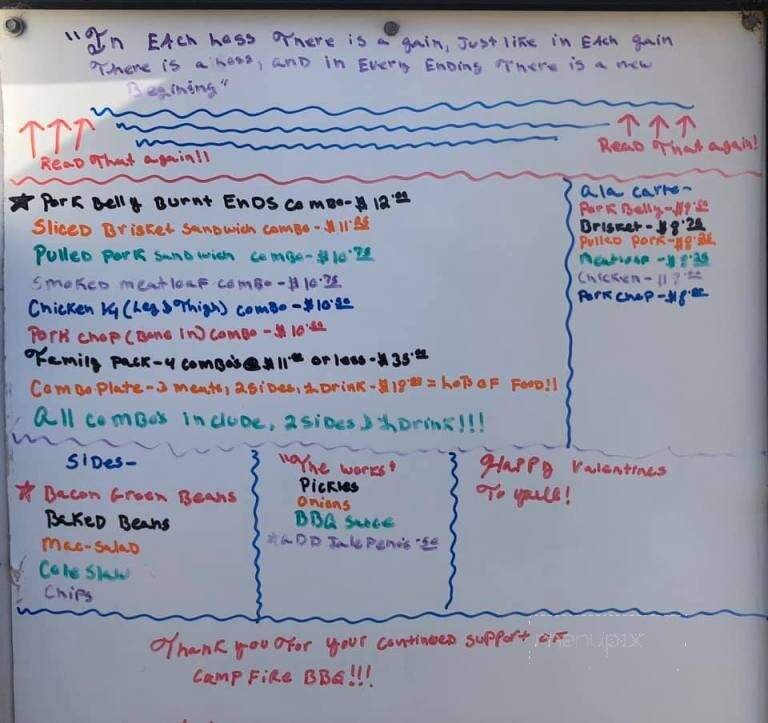 "In Each Loss There is a gain, Just like in Each gain
There is a Loss, and in Every Ending There is a new
Begining"
Read That again!!
Read That again!
Pork Belly Burnt Ends combo-$12.00
Sliced Brisket Sandwich combo-$11.25
Pulled Pork Sandwich combo-$10.75
Smoked meatloaf combo-$10.75
Chicken ¼ (Leg & Thigh) combo-$10.50
Pork Chop (Bone In) combo-$10.50
Family Pack-4 combo's @ $11.00 or less-$35.00
Combo Plate-3 meats, 2 sides, 1 Drink-$18.00 = Lots of Food!!
All combo's include, 2 sides & 1 Drink!!!
ala carte-
Pork Belly-$9.50
Brisket-$8.75
Pulled Pork-$8.25
Meatloaf-$8.25
Chicken-$7.00
Pork chop-$8.00
Sides-
Bacon Green Beans
Baked Beans
Mac-Salad
Cole Slaw
Chips
"The works"
Pickles
Onions
BBQ Sauce
*ADD Jalepeno's .50
Happy Valentines
To yall!
Thank you For your continued support of
Camp Fire BBQ!!!
menupix